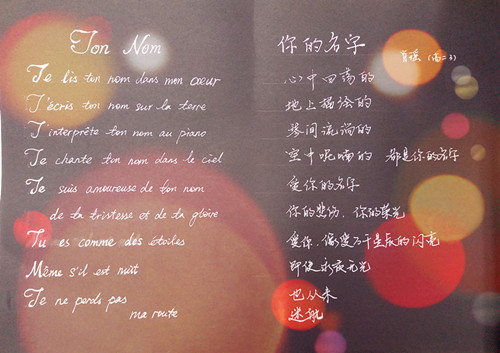 Ton Nom
Je lis ton nom dans mon cœur
J'écris ton nom sur la terre
J'interprète ton nom au piano
Je chante ton nom dans le ciel
Je suis amoureuse de ton nom
de ta tristesse et de ta gloire
Tu es comme des étoiles
Même s'il est nuit
Je ne perds pas
ma route
你的名字
肖瑶（高二3）
心中回荡的
地上描涂的
琴间流淌的
空中呢喃的 都是你的名字
爱你的名字
你的悲伤，你的荣光
爱你，偏爱万千星辰的闪亮
即使永夜无光
也从未
迷航